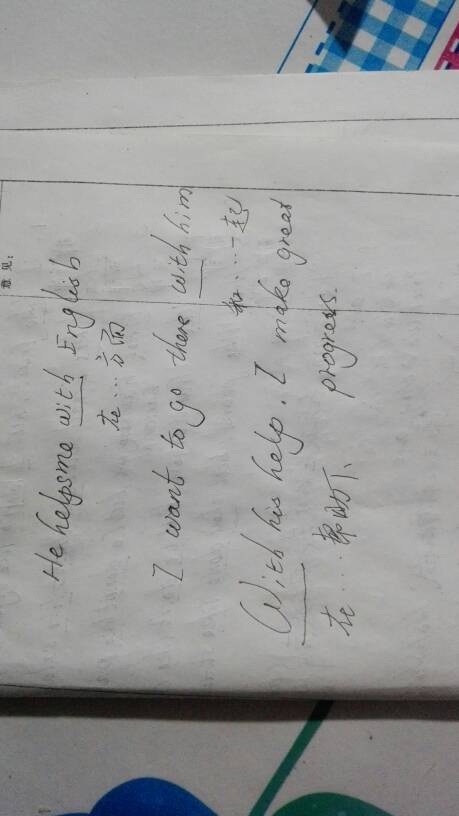 意见:
He helpsme with English
在...方面
I want to go there with him
和...一起
With his help. I make great
progress.
在...帮助下